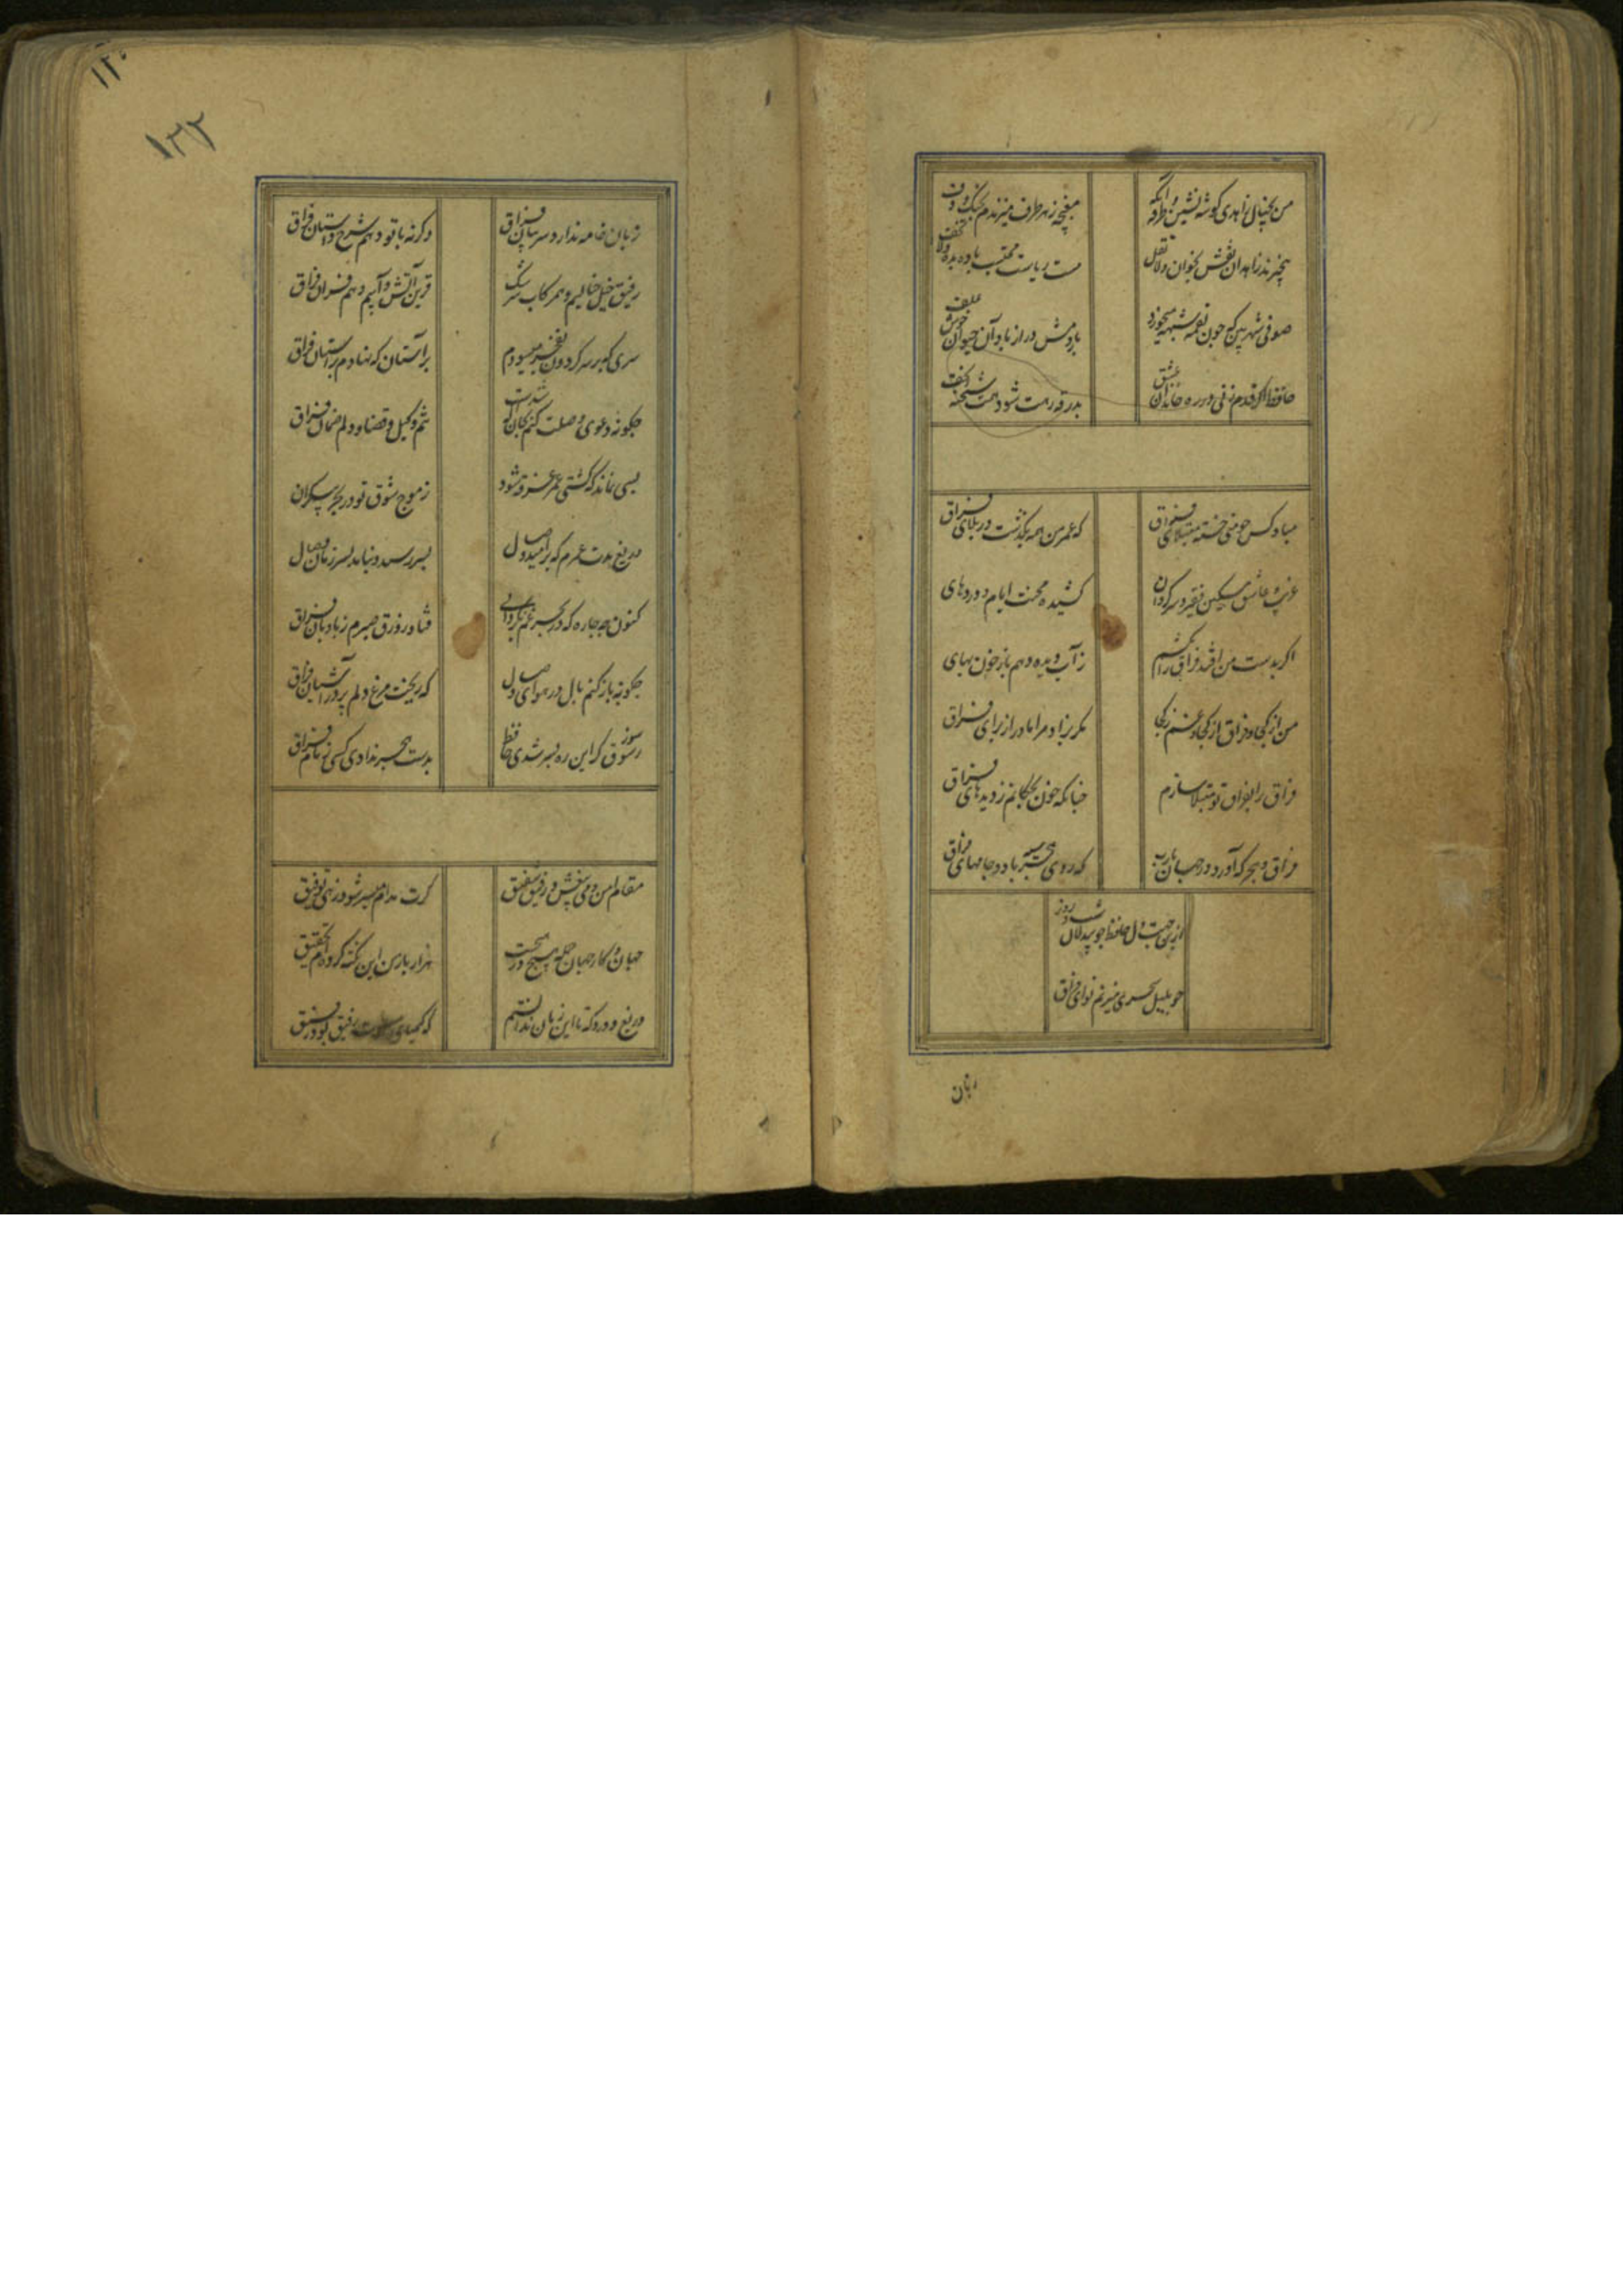 من بخیال زاهدی گوشه نشین و طرفه آنکه
مغبچه ز هر طرف میزندم بچنگ و دف
بیخبرند زاهدان نقش بخوان و لاتقل
مست ریاست محتسب باده بده و لاتخف
صوفی شهر بین که چون لقمه شبهه میخورد
پاردمش دراز باد آن حیوان خوش علف
حافظ اگر قدم زنی در ره خاندان عشق
بدرقه رهت شود همت شحنه نجف
مباد کس چو من خسته مبتلای فراق
که عمر من همه بگذشت در بلای فراق
غریب و عاشق و مسکین فقیر و سرگردان
کشیده محنت ایام و دردهای
اگر بدست من افتد فراق را بکشم
ز آب دیده دهم باز خون بهای
من از کجا و فراق از کجا و غم ز کجا
مگر بزاد مرا مادر از برای فراق
فراق را بفراق تو مبتلا سازم
چنانکه خون بچکانم ز دیدهای فراق
فراق و هجر که آورد در جهان یارب
که روی هجر سیه باد و جامهای فراق
از روز
حافظ چو بیدلان شب و
چو بلبل سحری میزنم نوای فراق
زبان
۱۲۰
۱۲۲
زبان خامه ندارد سر بیان فراق
وگرنه با تو دهم شرح داستان فراق
رفیق خیل خیالیم و همرکاب سرشک
قرین آتش و آبیم و هم قران فراق
سری که بر سر گردون بفخر میسودم
بر آستان که نهادم بر آستان فراق
چگونه دعوی وصلت کنم بجان که شدست
تنم وکیل قضا و دلم ضمان فراق
بسی نماند که کشتی عمر غرقه شود
ز موج شوق تو در بحر بیکران
دریغ مدت عمرم که بر امید وصال
بسر رسید و نیامد بسر زمان وصال
کنون چه چاره که در بحر غم بگردابی
فتاد زورق صبرم ز بادبان فراق
چگونه باز کنم بال در هوای وصال
که ریخت مرغ دلم پر در آشیان فراق
سوز شوق گر این ره بسر شدی حافظ
بدست هجر ندادی کسی زمام فراق
مقام امن و می بیغش و رفیق شفیق
گرت مدام میسر شود زهی توفیق
جهان و کار جهان جمله هیچ در هیچست
هزار بار من این نکته کرده‌ام تحقیق
دریغ و درد که تا این زمان ندانستم
که کیمیای سعادت رفیق بود رفیق